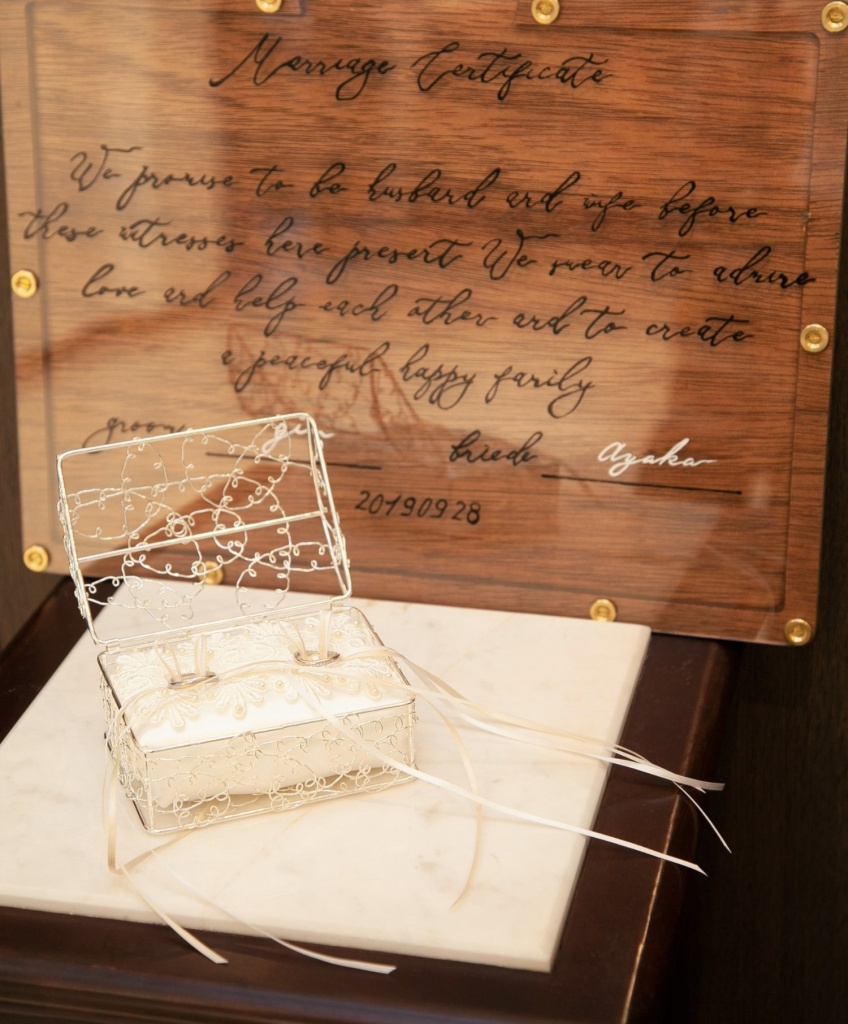 Marriage Certificate
We promise to be husband and wife before
these witnesses here present We swear to admire
love and help each other and to create
a peaceful happy family
groom
briede Ayaka
20190928